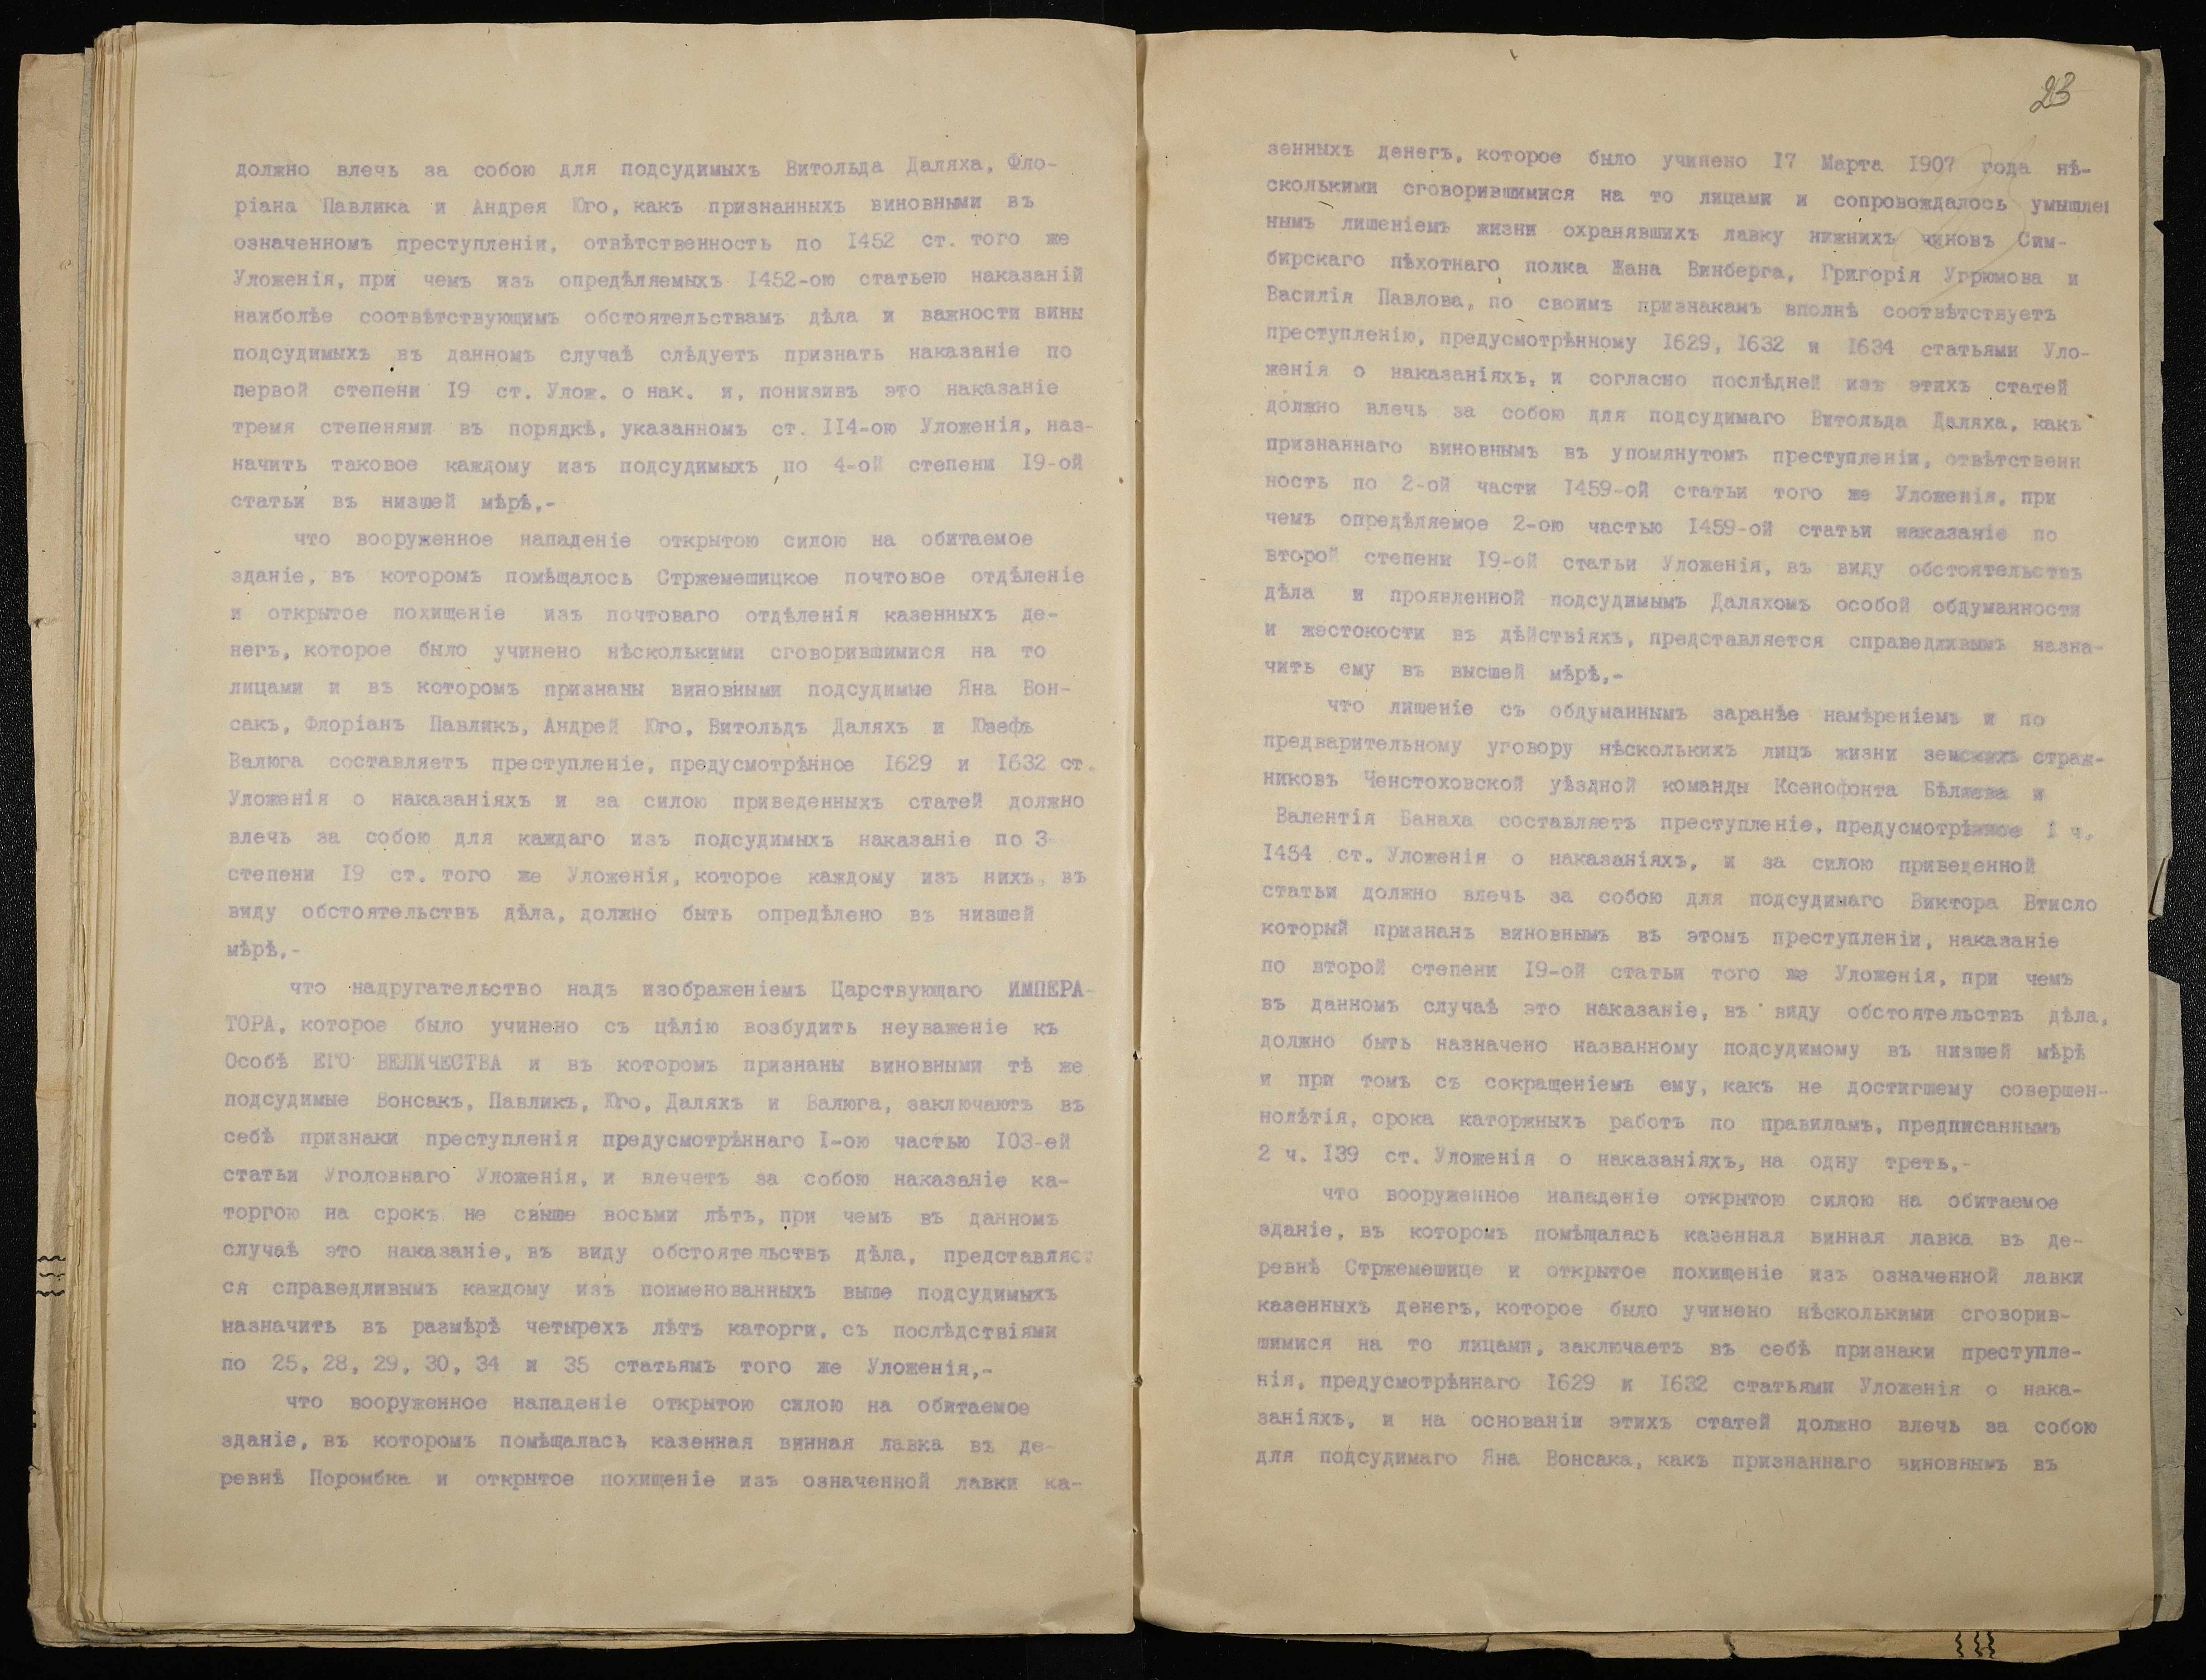 должно влечь за собою для подсудимыхъ Витольда Даляха, Фло-
ріана Павлика и Андрея Юго, какъ признанныхъ виновными въ
означенномъ преступленіи, отвѣтственность по 1452 ст. того же
Уложенія, при чемъ изъ опредѣляемыхъ 1452-ою статьею наказаній
наиболѣе соотвѣтствующимъ обстоятельствамъ дѣла и важности вины
подсудимыхъ въ данномъ случаѣ слѣдуетъ признать наказаніе по
первой степени 19 ст. Улож. о нак. и, понизивъ это наказаніе
тремя степенями въ порядкѣ, указанномъ ст. 114-ою Уложенія, наз-
начить таковое каждому изъ подсудимыхъ по 4-ой степени 19-ой
статьи въ низшей мѣрѣ,-
что вооруженное нападеніе открытою силою на обитаемое
зданіе, въ которомъ помѣщалось Стржемешицкое почтовое отдѣленіе
и открытое похищеніе изъ почтоваго отдѣленія казенныхъ де-
негъ, которое было учинено нѣсколькими сговорившимися на то
лицами и въ которомъ признаны виновными подсудимые Яна Вон-
сакъ, Флоріанъ Павликъ, Андрей Юго, Витольдъ Даляхъ и Юзефъ
Валюга составляетъ преступленіе, предусмотрѣнное 1629 и 1632 ст.
Уложенія о наказаніяхъ и за силою приведенныхъ статей должно
влечь за собою для каждаго изъ подсудимыхъ наказаніе по 3-
степени 19 ст. того же Уложенія, которое каждому изъ нихъ, въ
виду обстоятельствъ дѣла, должно быть опредѣлено въ низшей
мѣрѣ,-
что надругательство надъ изображеніемъ Царствующаго ИМПЕРА-
ТОРА, которое было учинено съ цѣлію возбудить неуваженіе къ
Особѣ ЕГО ВЕЛИЧЕСТВА и въ которомъ признаны виновными тѣ же
подсудимые Вонсакъ, Павликъ, Юго, Даляхъ и Валюга, заключаютъ въ
себѣ признаки преступленія предусмотрѣннаго 1-ою частью 103-ей
статьи Уголовнаго Уложенія, и влечетъ за собою наказаніе ка-
торгою на срокъ не свыше восьми лѣтъ, при чемъ въ данномъ
случаѣ это наказаніе, въ виду обстоятельствъ дѣла, представляет
ся справедливымъ каждому изъ поименованныхъ выше подсудимыхъ
назначить въ размѣрѣ четырехъ лѣтъ каторги, съ послѣдствіями
по 25, 28, 29, 30, 34 и 35 статьямъ того же Уложенія,-
что вооруженное нападеніе открытою силою на обитаемое
зданіе, въ которомъ помѣщалась казенная винная лавка въ де-
ревнѣ Поромбка и открытое похищеніе изъ означенной лавки ка-
23
зенныхъ денегъ, которое было учинено 17 Марта 1907 года нѣ-
сколькими сговорившимися на то лицами и сопровождалось умышлен
нымъ лишеніемъ жизни охранявшихъ лавку нижнихъ чиновъ Сим-
бирскаго пѣхотнаго полка Жана Винберга, Григорія Угрюмова и
Василія Павлова, по своимъ признакамъ вполнѣ соотвѣтствуетъ
преступленію, предусмотрѣнному 1629, 1632 и 1634 статьями Уло-
женія о наказаніяхъ, и согласно послѣдней изъ этихъ статей
должно влечь за собою для подсудимаго Витольда Даляха, какъ
признаннаго виновнымъ въ упомянутомъ преступленіи, отвѣтственн
ность по 2-ой части 1459-ой статьи того же Уложенія, при
чемъ опредѣляемое 2-ою частью 1459-ой статьи наказаніе по
второй степени 19-ой статьи Уложенія, въ виду обстоятельствъ
дѣла и проявленной подсудимымъ Даляхомъ особой обдуманности
и жестокости въ дѣйствіяхъ, представляется справедливымъ назна-
чить ему въ высшей мѣрѣ,-
что лишеніе съ обдуманнымъ заранѣе намѣреніемъ и по
предварительному уговору нѣсколькихъ лицъ жизни земскихъ страж-
никовъ Ченстоховской уѣздной команды Ксенофонта Бѣляева и
Валентія Банаха составляетъ преступленіе, предусмотрѣнное 1 ч.
1454 ст. Уложенія о наказаніяхъ, и за силою приведенной
статьи должно влечь за собою для подсудимаго Виктора Втисло
который признанъ виновнымъ въ этомъ преступленіи, наказаніе
по второй степени 19-ой статьи того же Уложенія, при чемъ
въ данномъ случаѣ это наказаніе, въ виду обстоятельствъ дѣла,
должно быть назначено названному подсудимому въ низшей мѣрѣ
и при томъ съ сокращеніемъ ему, какъ не достигшему совершен-
нолѣтія, срока каторжныхъ работъ по правиламъ, предписаннымъ
2 ч. 139 ст. Уложенія о наказаніяхъ, на одну треть,-
что вооруженное нападеніе открытою силою на обитаемое
зданіе, въ которомъ помѣщалась казенная винная лавка въ де-
ревнѣ Стржемешице и открытое похищеніе изъ означенной лавки
казенныхъ денегъ, которое было учинено нѣсколькими сговорив-
шимися на то лицами, заключаетъ въ себѣ признаки преступле-
нія, предусмотрѣннаго 1629 и 1632 статьями Уложенія о нака-
заніяхъ, и на основаніи этихъ статей должно влечь за собою
для подсудимаго Яна Вонсака, какъ признаннаго виновнымъ въ